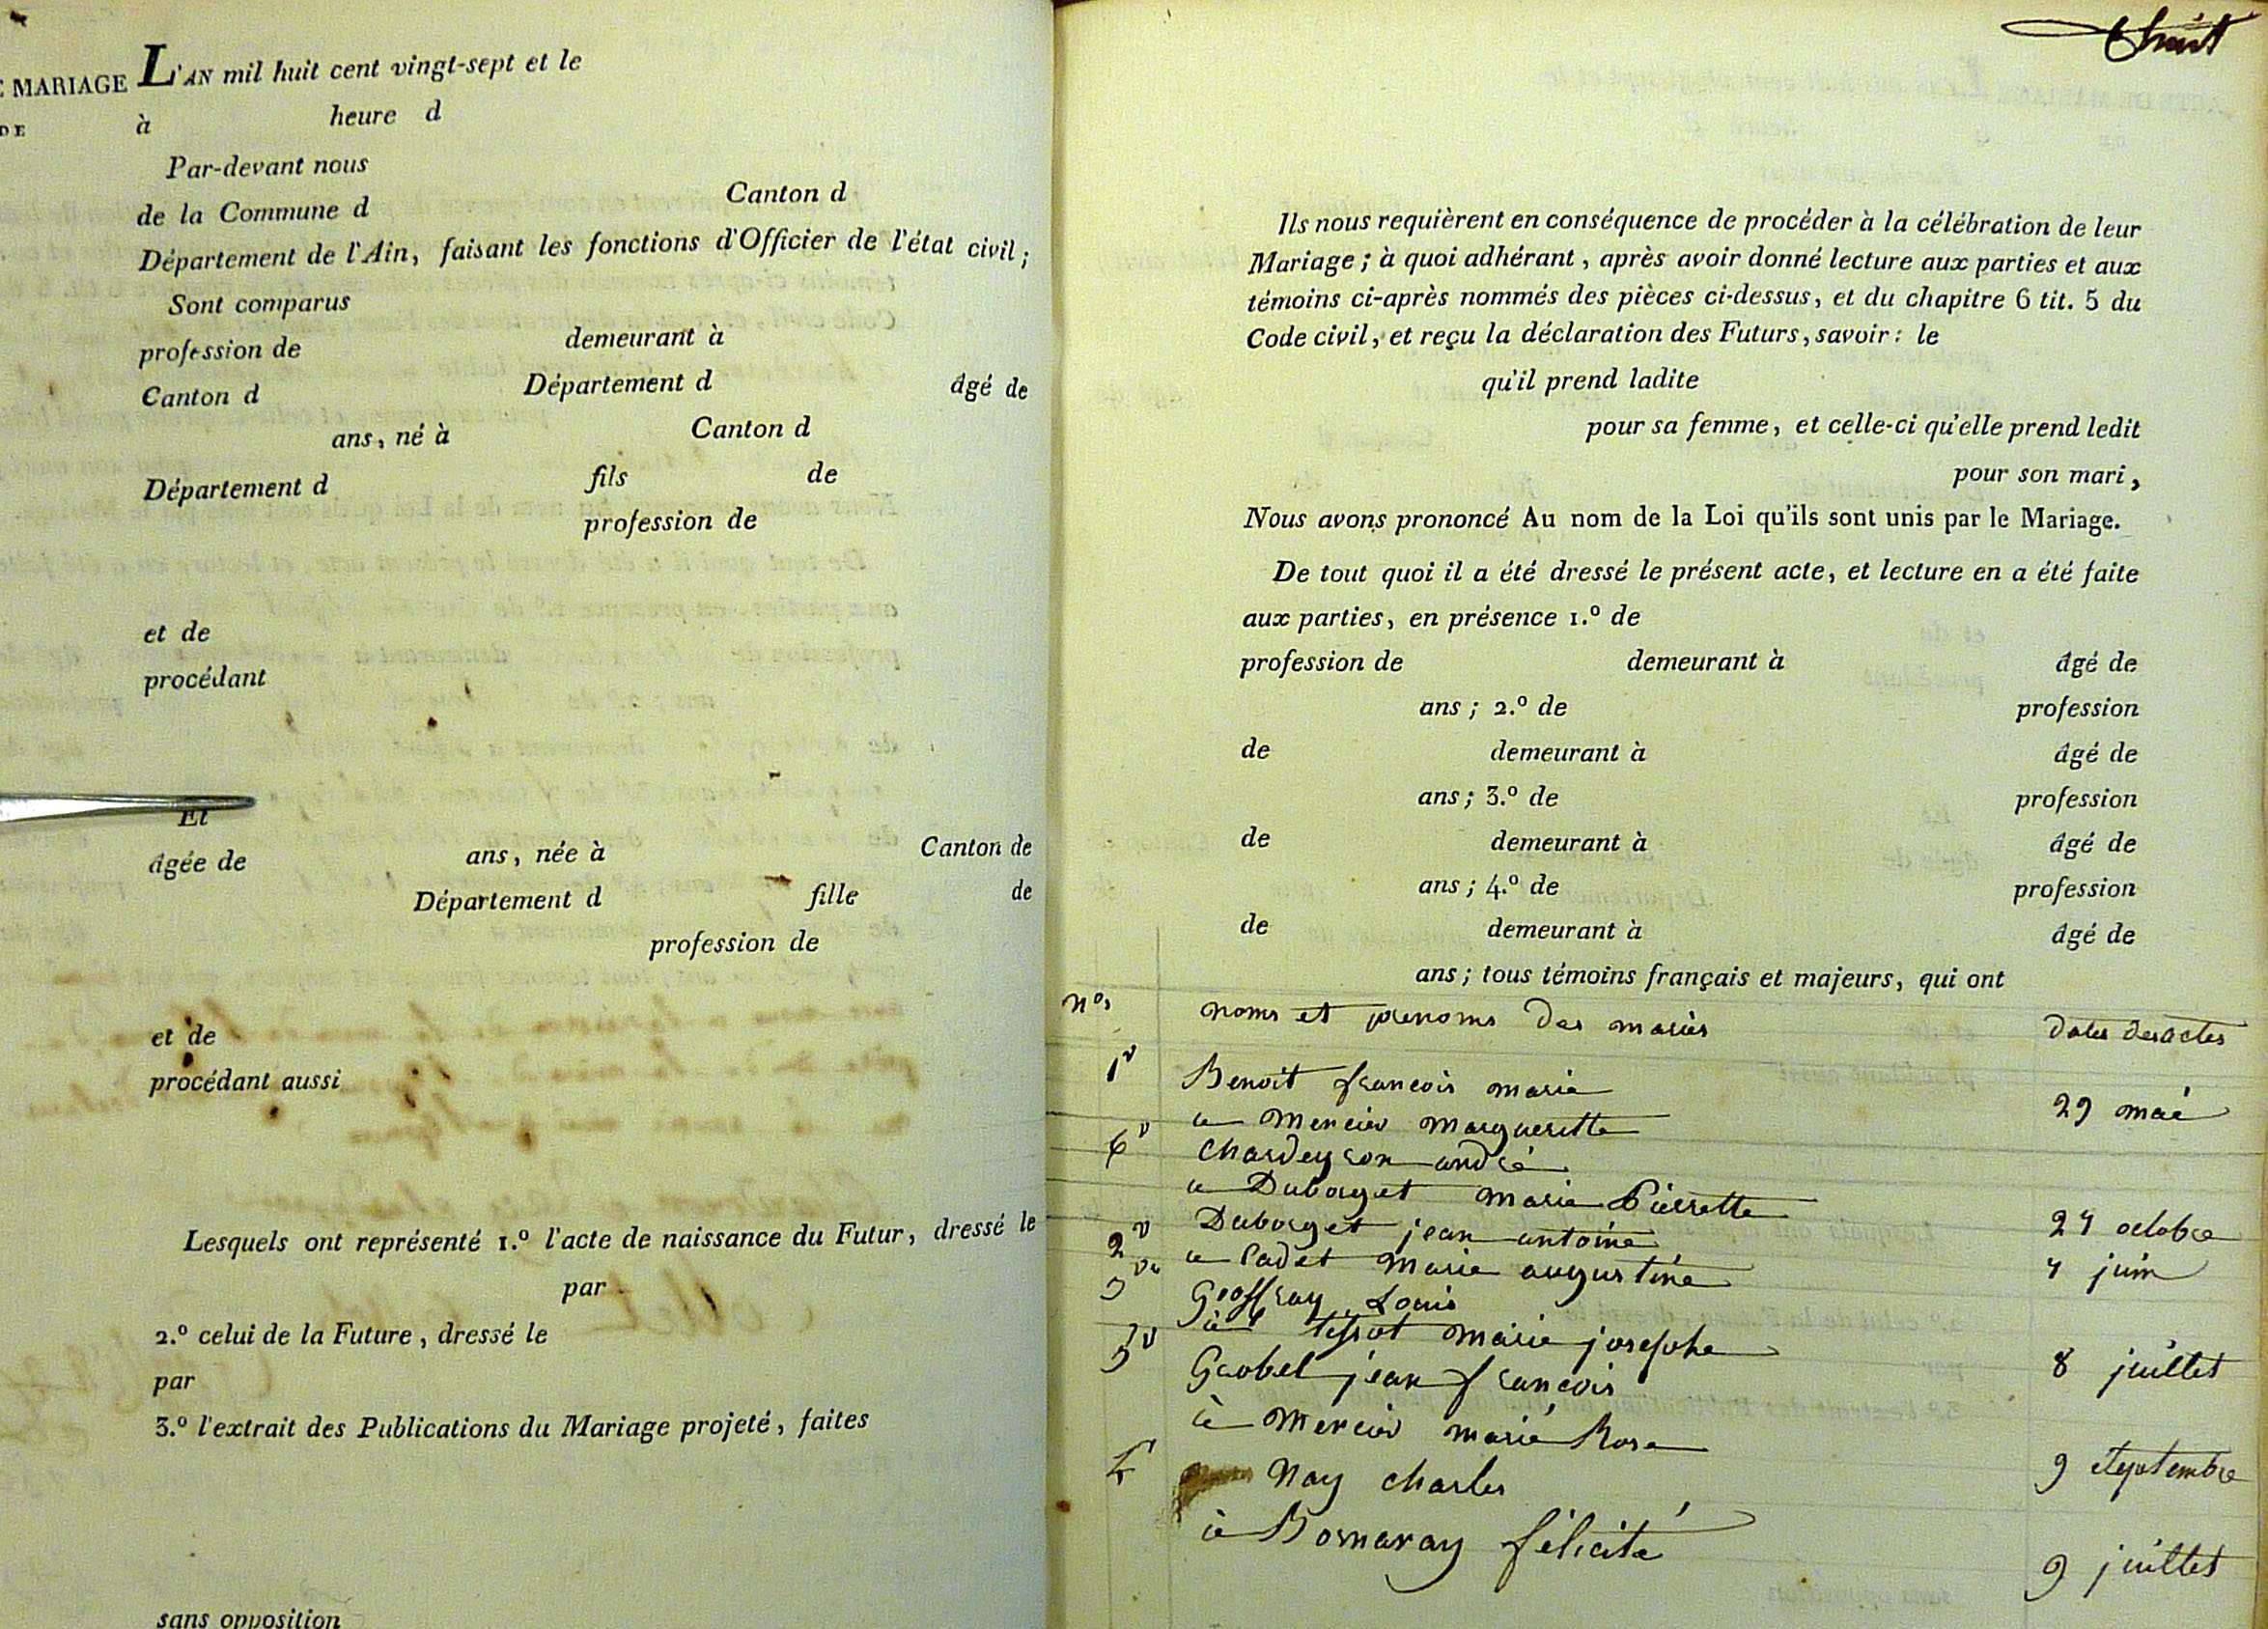 E MARIAGE
DE
L'AN mil huit cent vingt-sept et le
à heure d
Par-devant nous
de la Commune d Canton d
Département de l'Ain, faisant les fonctions d'Officier de l'état civil;
Sont comparus
profession de demeurant à
Canton d Département d âgé de
ans, né à Canton d
Département d fils de
profession de
et de
procédant
Et
âgée de ans, née à Canton de
Département d fille de
profession de
et de
procédant aussi
Lesquels ont représenté 1.º l'acte de naissance du Futur, dressé le
par
2.º celui de la Future, dressé le
par
3.º l'extrait des Publications du Mariage projeté, faites
sans opposition
huit
Ils nous requièrent en conséquence de procéder à la célébration de leur
Mariage; à quoi adhérant, après avoir donné lecture aux parties et aux
témoins ci-après nommés des pièces ci-dessus, et du chapitre 6 tit. 5 du
Code civil, et reçu la déclaration des Futurs, savoir: le
qu'il prend ladite
pour sa femme, et celle-ci qu'elle prend ledit
pour son mari,
Nous avons prononcé Au nom de la Loi qu'ils sont unis par le Mariage.
De tout quoi il a été dressé le présent acte, et lecture en a été faite
aux parties, en présence 1.º de
profession de demeurant à âgé de
ans; 2.º de profession
de demeurant à âgé de
ans; 3.º de profession
de demeurant à âgé de
ans; 4.º de profession
de demeurant à âgé de
ans; tous témoins français et majeurs, qui ont
nos noms et prenoms des mariés dates des actes
1 Benoit françois marie
a Mercier margueritte 29 mai
6 Chardeyron andré
a Duborget marie Pierrette 24 octobre
2 Duborget jean antoine 4 juin
a Cadet marie augustine
3 Geoffray Louis
à tissot marie josephe 8 juillet
5 Grobel jean françois
à Mercier marie Rose 9 septembre
4 Nay charles
à Bornaray félicité 9 juillet